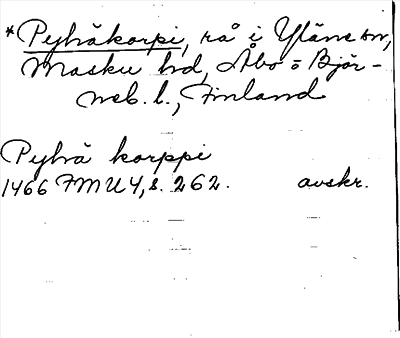 *Pyhäkorpi, rå i Yläne sn,
Masku hd, Åbo o Björ-
neb. l., Finland
Pyhä korppi
1466 FMU 4, s. 262. avskr.